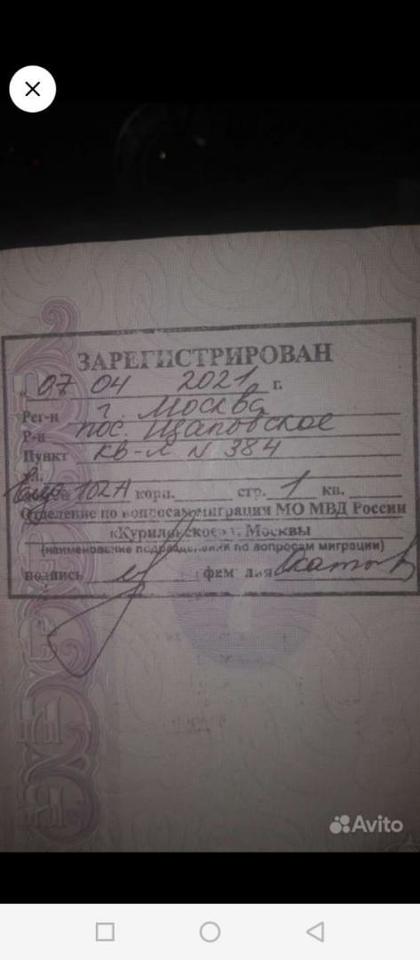 ЗАРЕГИСТРИРОВАН
« 07 04 2021 г.
Рег-н г. Москва
Р-н пос. Щаповское
Пункт кв-л N 384
Ул.
102А корп. стр. 1 кв.
Отделение по вопросам миграции МО МВД России
г. Москвы
(наименование подразделения по вопросам миграции)
подпись фамилия
Avito